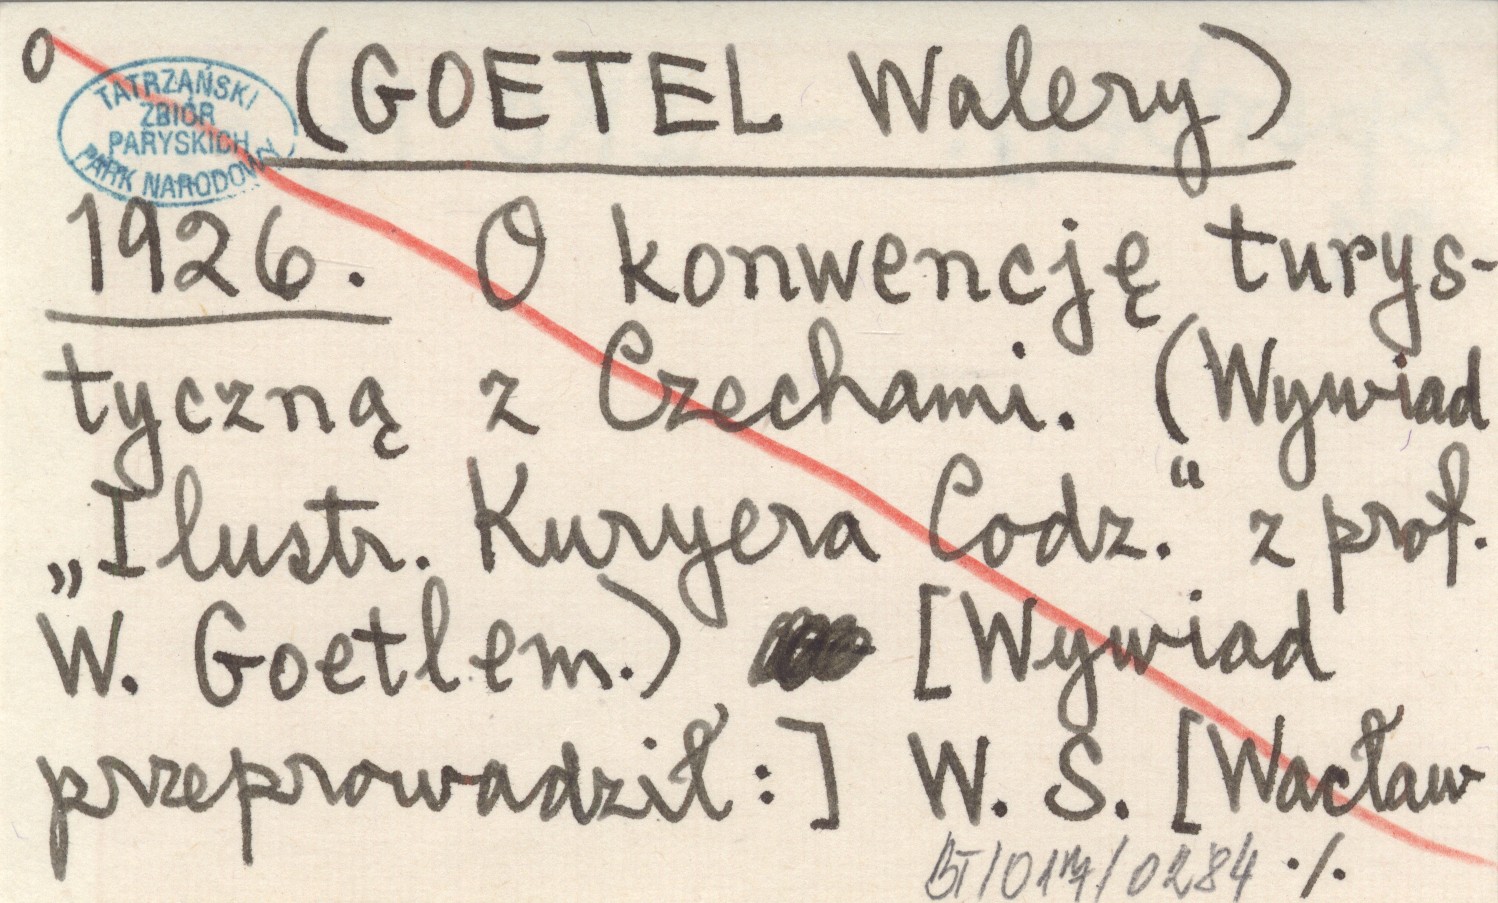 O
TATRZAŃSKI
ZBIÓR
PARYSKICH
PARK NARODOWY
(GOETEL Walery)
1926. O konwencję turys-
tyczną z Czechami. (Wywiad
„Ilustr. Kuryera Codz.“ z prof.
W. Goetlem.) [Wywiad
przeprowadził:] W. S. [Wacław
BT/017/0284 ./.